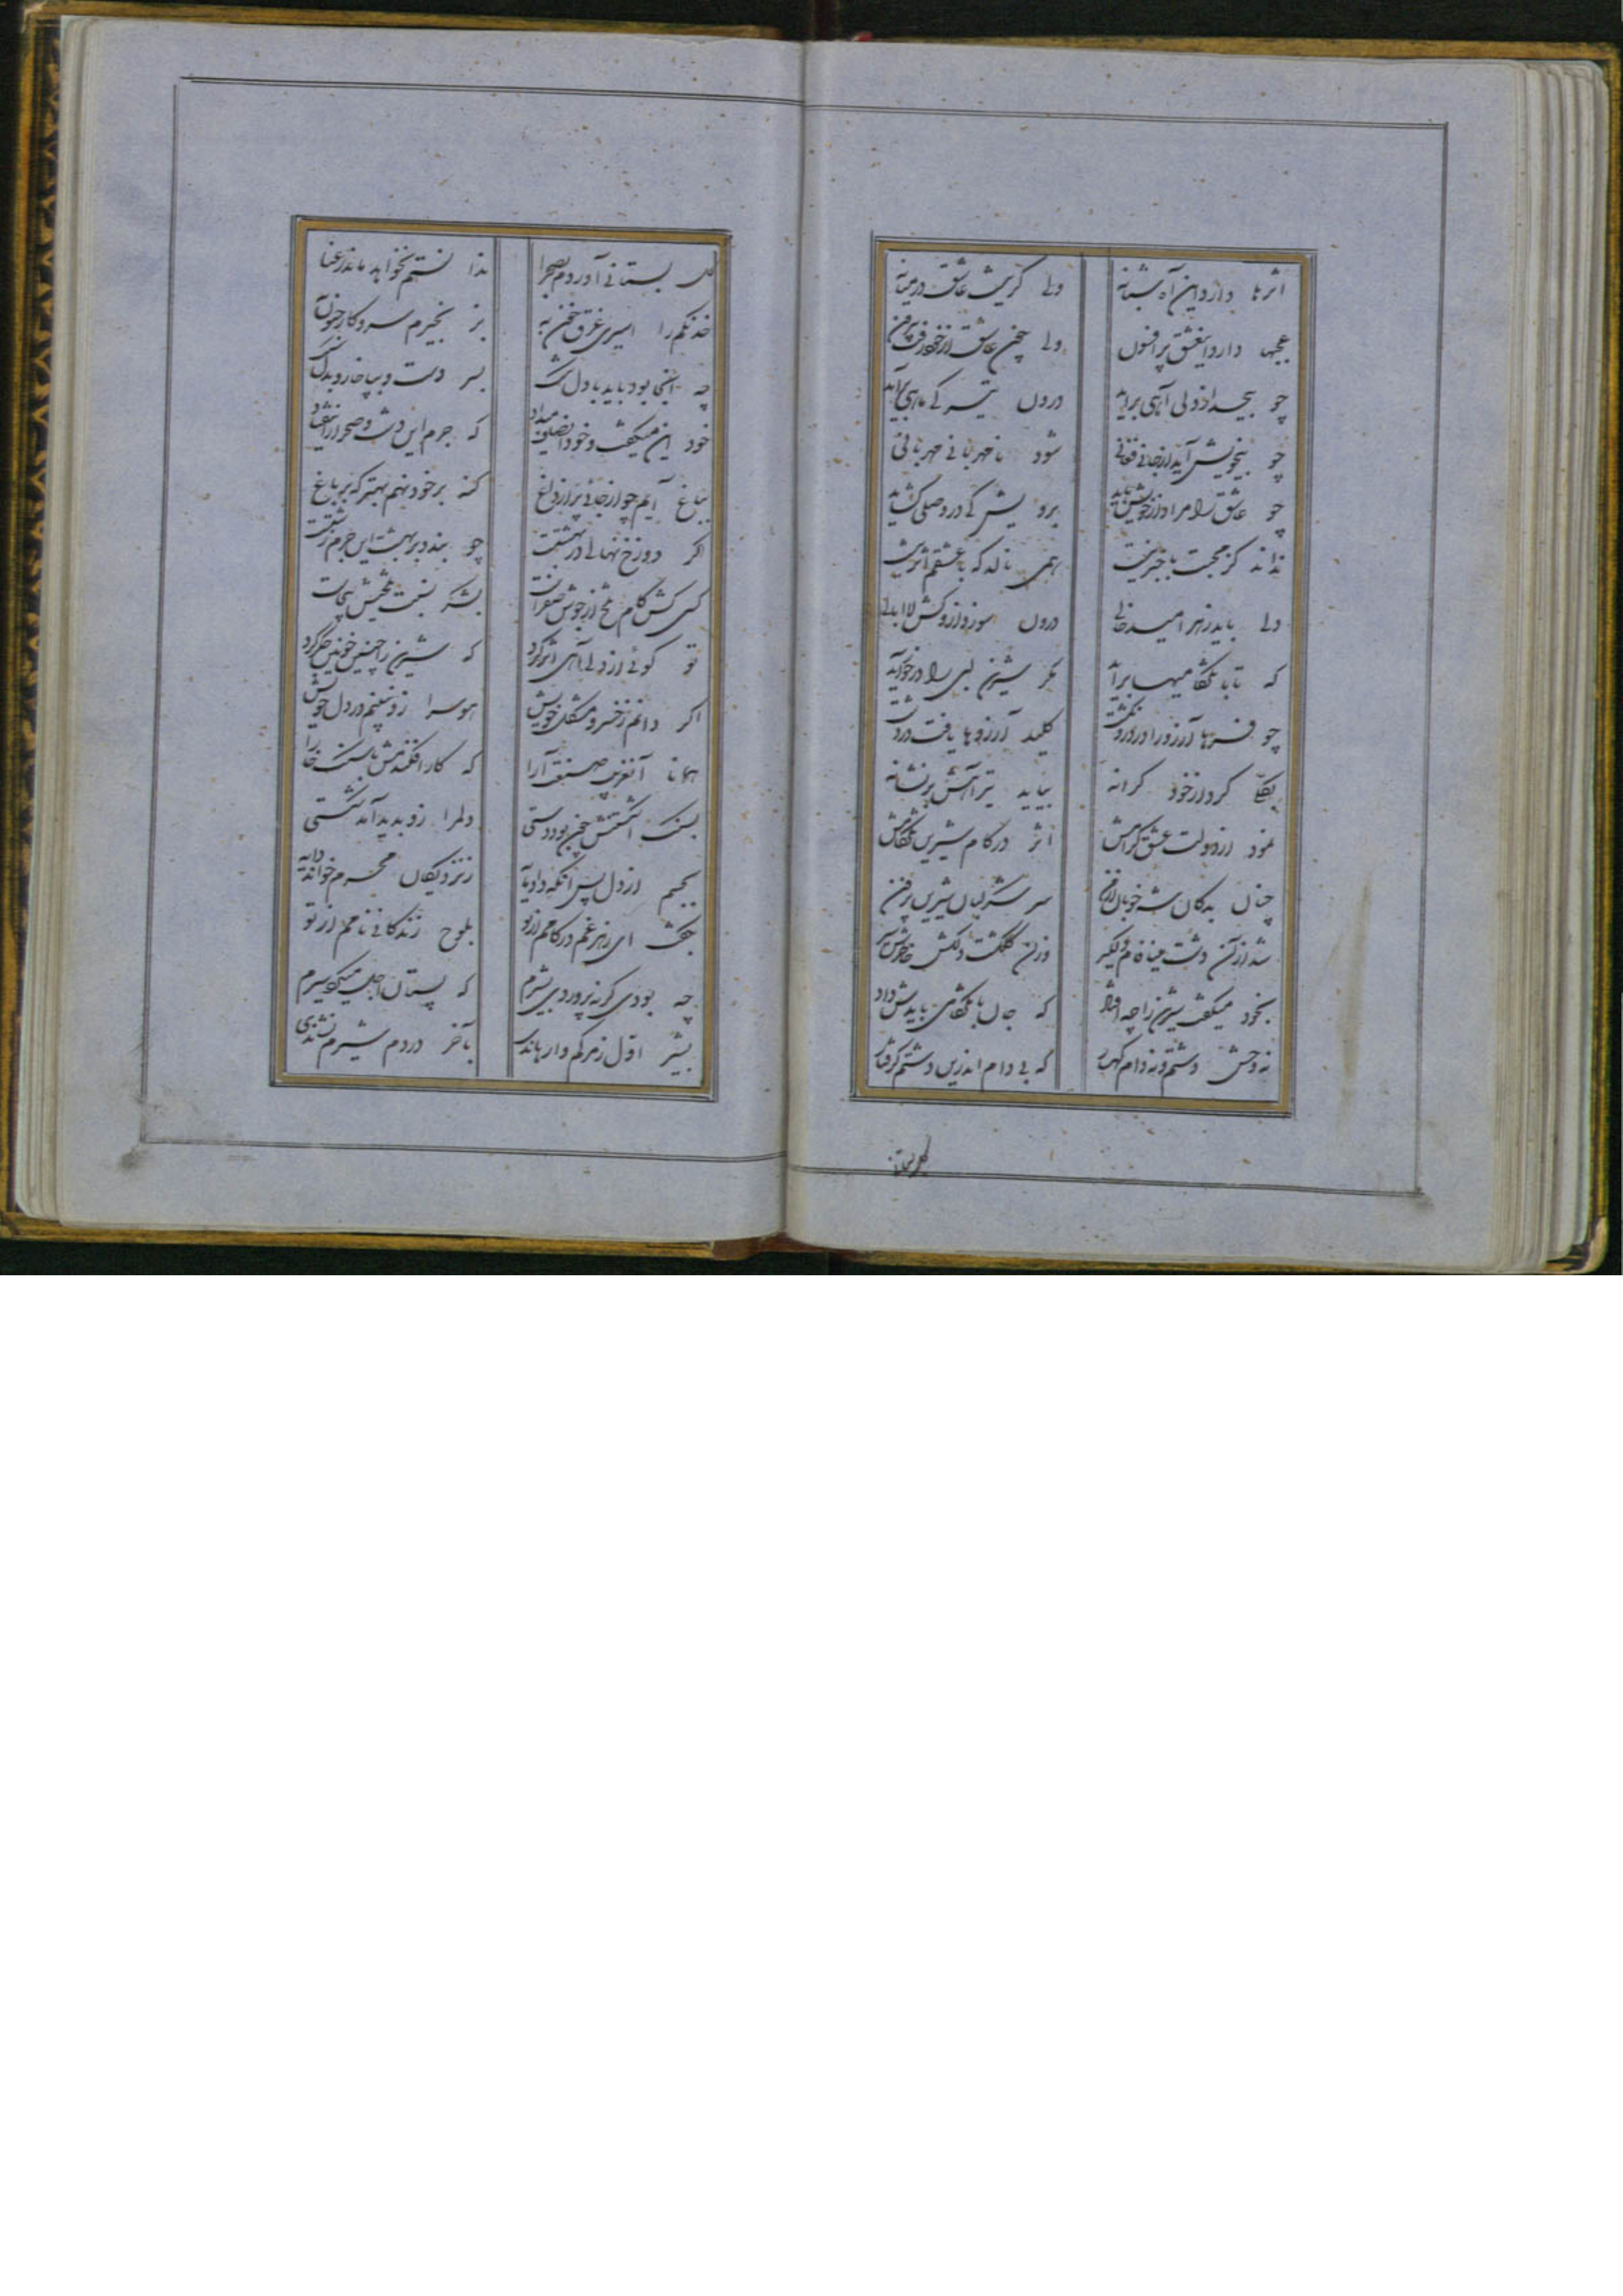 اثرها دارد این آه شبانه ولی گر نیست عاشق در میانه
عجبها دارد این عشق پر افسون ولی چون عاشق از خود رفت بیرون
چو بیخود از دلی آهی برآید درون تیر کی ماهی برآید
چو بیخویش آید از جانی فغانی شود نامهربانی مهربانی
چو عاشق را مراد از خویش باید برویش کی در وصلی گشاید
نداند کز محبت با خبر نیست همی نالد که با عشقم اثر نیست
ولی باید ز هر امید خالی درون سوز و از وکش لاابالی
که تا با تلخکامیها برآید مگر شیرین لبی را در خور آید
چو فرهاد آرزو را در درون کشت کلید آرزوها یافت در مشت
بکلی کرد از خود کرانه بیامد تیر آهش بر نشانه
نمود از دولت عشق گرامیش اثر در کام شیرین تلخکامیش
چنان بد کان شه خوبان ارمن سر شکر لبان شیرین پر فن
شد از آن دشت مینافام دلگیر وزان گلگشت دلکش خاطرش سیر
بخود میگفت شیرین را چه افتاد که جان با تلخکامی بایدش داد
نه وحش دشتم و نه دام کهسار که بی دام اندرین دشتم گرفتار
گل بستانی
گل بستانی آوردم بصحرا ندانستم نخواهد ماند رعنا
خدنگم را اسیری غرق خون به ز نخجیرم سر و کار جنون به
چه اینجا بود باید با دل تنگ بسر دست و بپا خار و بدل سنگ
خود این میگفت و خود انصاف میداد که جرم این دشت و صحرا را نیفتاد
بباغ آیم چو از جانی پر از داغ گنه بر خود نهم بهتر که بر باغ
اگر دوزخ نهانی در بهشتست چو بندد بر بهشت این جرم زشتست
کسی کش کام تلخ از جوش صفراست بشکر نسبت تلخیش بیجاست
تو گوئی از دلی آهی اثر کرد که شیرین را چنین خونین جگر کرد
اگر دانم ز خسرو مشکل خویش هوس را زو نبینم در دل خویش
همانا آنغریب صنعت آرا که کار افکندمش با سنگ خارا
بسنگ انگشتش چون بود دستی دلم را زو پدید آمد شکستی
بگفتم از دل پس آنگه دایه را ز نزدیکان محرم خواند دایه
بگفت ای زهر غم در کامم از تو بلوح زندگانی نامم از تو
چه بودی گر نپروردی بشیرم که پستان اجل میکرد سیرم
بشیر اول ز مرگم وارهاندی بآخر در دم شیرم نشاندی